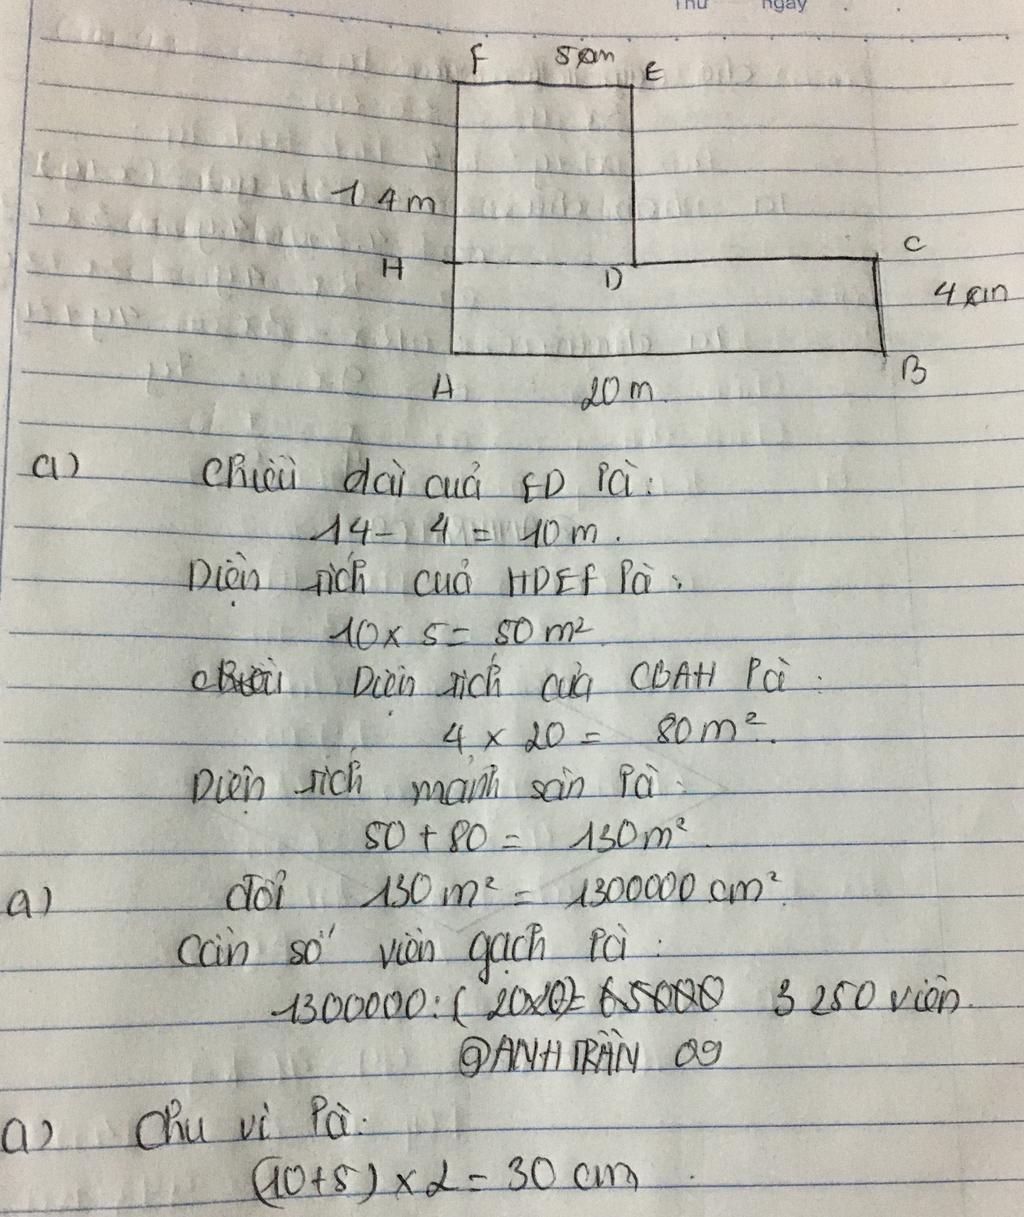 Thứ ngày
F 5 cm E
14 m
H D C
4 cm
A B
20 m
a) chiều dài của ED là:
14 - 4 = 10 m.
Diện tích của HDEF là:
10 x 5 = 50 m²
Diện tích của CBAH là:
4 x 20 = 80 m².
Diện tích mảnh sân là:
50 + 80 = 130 m².
a) đổi 130 m² = 1300000 cm².
Cần số viên gạch là:
1300000 : ( 20x20) = 3 250 viên.
@ANHTRẦN 09
a) Chu vi là:
(10+5) x 2 = 30 cm